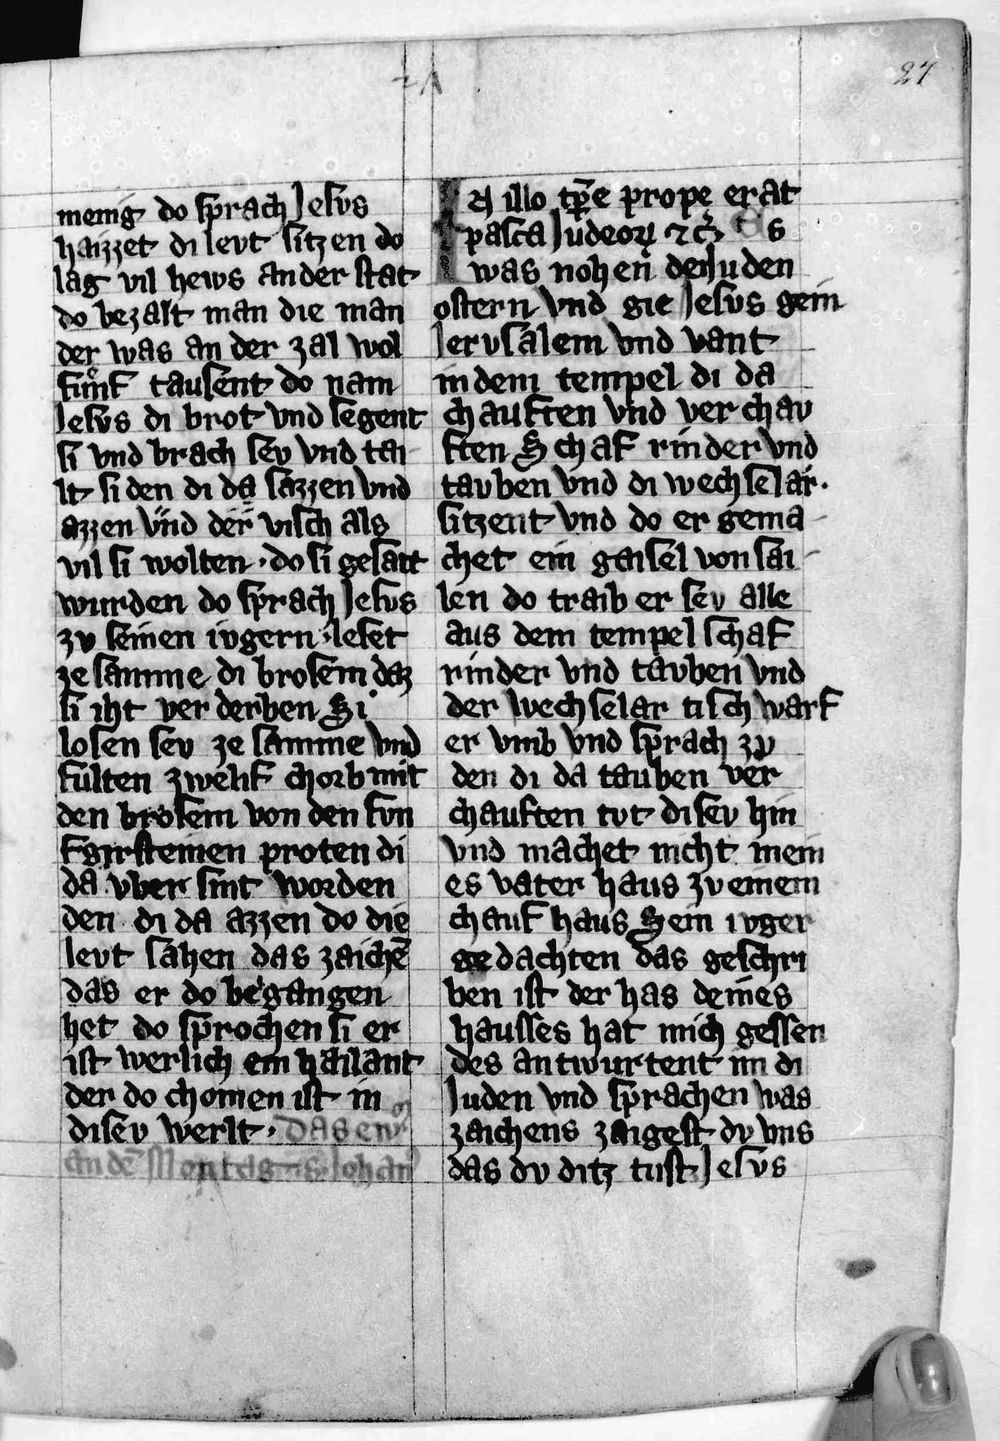 27
menig do sprach Jesvs
haizzet di levt sitzen do
lag vil hews an der stat
do bezalt man die man
der was an der zal wol
fůnf tausent do nam
Jesvs di brot vnd segent
si vnd brach sev vnd tai
lt si den di da sazzen vnd
azzen vnd der visch als
vil si wolten · do si gesatt
wurden do sprach Jesvs
zv seinen ivgern · leset
ze samme di brosem daz
si iht ver derben Si
losen sev ze samme vnd
fulten zwelif chorb mit
den brosem von den fvn
f girsteinen proten di
da vber sint worden
den di da azzen do die
levt sahen das zaichē
das er do begangen
het do sprochen si er
ist werlich ein hailant
der do chomen ist in
disev werlt · Das ew
an dē Mentag Johan
In illo tp̄e prope erat
pasca Judeoꝝ ⁊c̄ Es
was nohen der Juden
ostern vnd gie Jesvs gein
Jervsalem vnd vant
in dem tempel di da
chauften vnd ver chav
ften Schaf rinder vnd
tavben vnd di wechselar ·
sitzent vnd do er gema
chet ein gaisel von sai
len do traib er sev alle
aus dem tempel schaf
rinder vnd tavben vnd
der wechselar tisch warf
er vmb vnd sprach zv
den di da tauben ver
chauften tvt disev hin
vnd machet nicht mein
es vater haus zv einem
chauf haus Sein ivger
gedachten das geschri
ben ist der has deines
hausses hat mich gessen
des antwurtent im di
Juden vnd sprachen was
zaichens zaigest dv vns
das dv ditz tust Jesvs